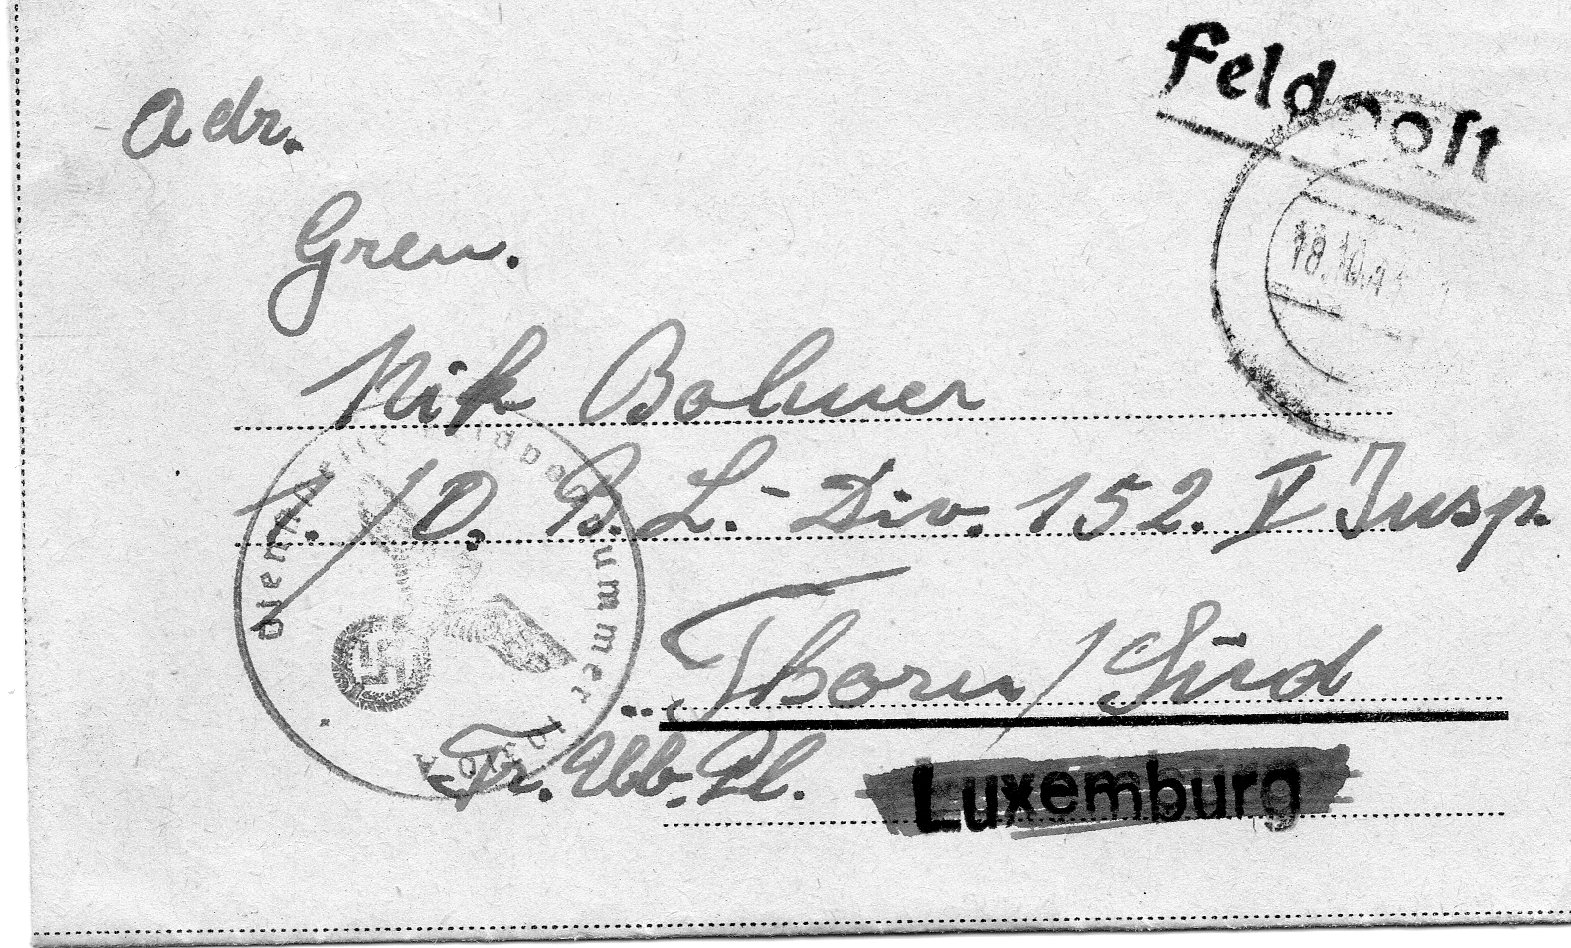 Feldpost
Adr.
Gren.
Nik Bohmer
1./O. B. L.-Div. 152. V Insp.
Thorn/Süd
Tr. Üb. Pl.
Luxemburg
18.10.4
Dienststelle Feldpostnummer